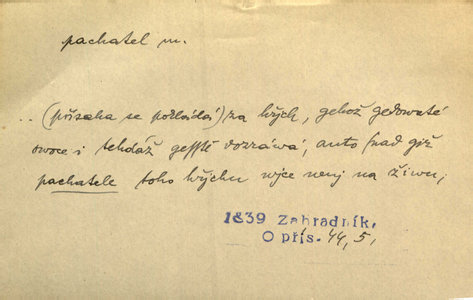 pachatel m.
.. (přísaha se pokládá) za hřjch, gehož gedowaté
owoce i tehdáž gesstě dozráwá, anto snad giž
pachatele toho hřjchu wjce nenj na žiwu,
1839 Zahradník,
O přís. 44, 5,